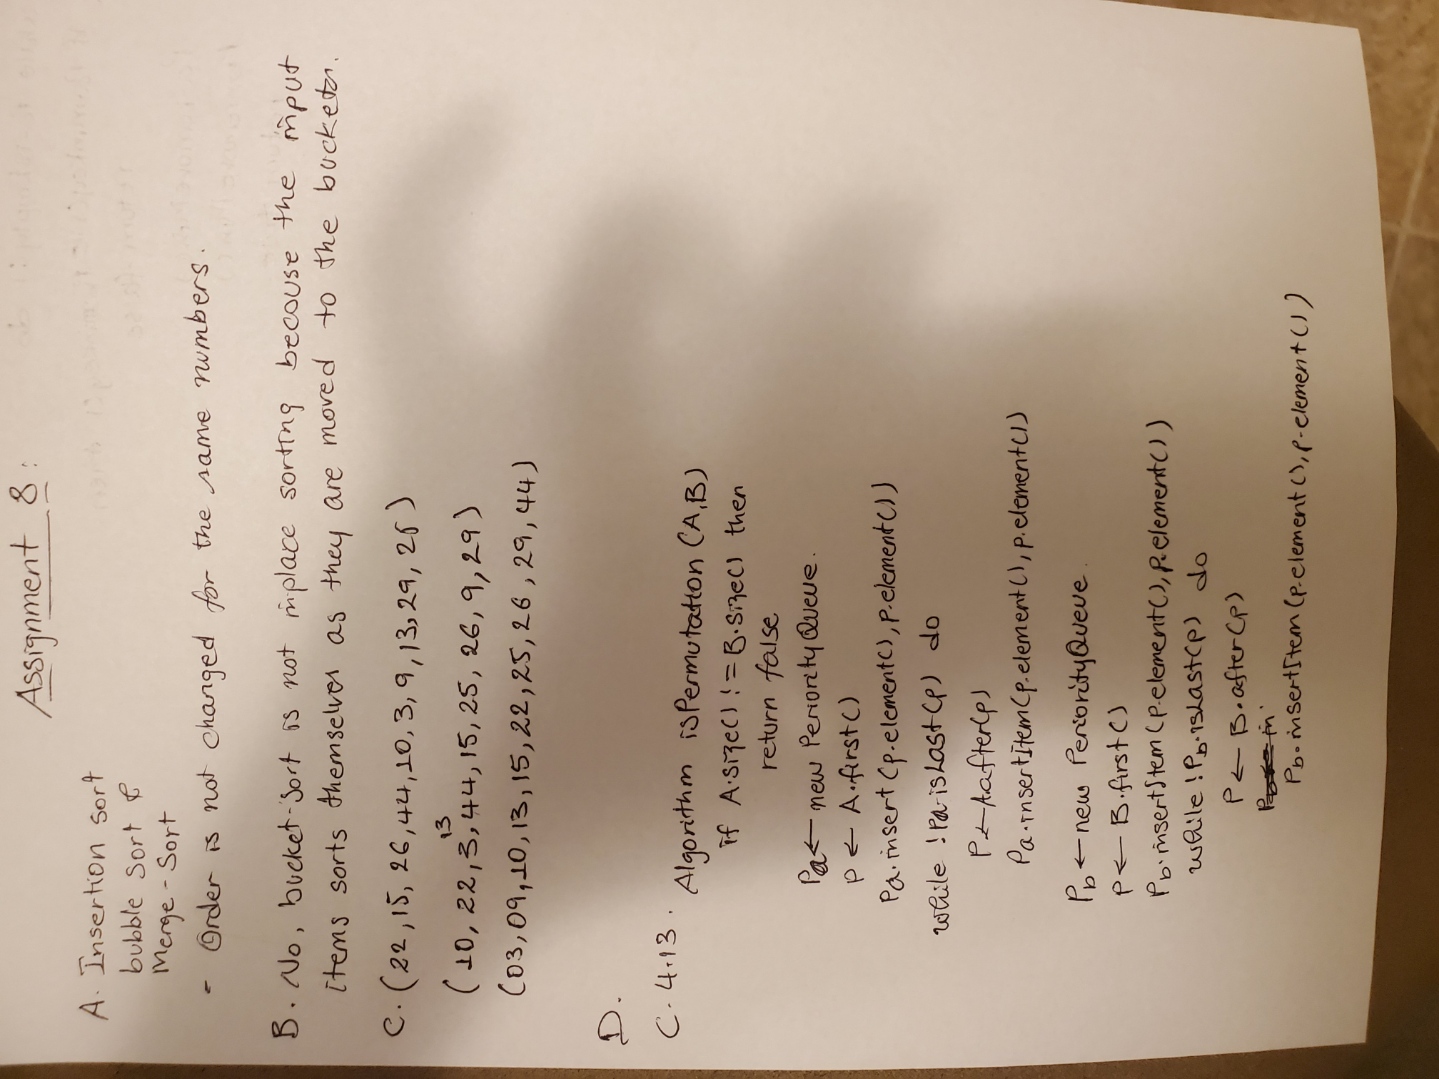 Assignment 8:
A. Insertion sort
bubble sort &
Merge-Sort
- Order is not changed for the same numbers.
B. No, bucket-sort is not inplace sorting becouse the input
items sorts themselves as they are moved to the buckets.
C. (22, 15, 26, 44, 10, 3, 9, 13, 29, 25)
13
(10, 22, 3, 44, 15, 25, 26, 9, 29)
(03, 09, 10, 13, 15, 22, 25, 26, 29, 44)
D.
C. 4.13.
Algorithm isPermutation (A,B)
if A.size() != B.size() then
return false
Pa ← new PeriorityQueue.
P ← A.first()
Pa.insert (p.element(), p.element())
while !Pa.isLast(p) do
P ← A.after(p)
Pa.insertItem(p.element(), p.element())
Pb ← new PeriorityQueue.
P ← B.first()
Pb.insertItem (p.element(), p.element())
while !Pb.isLast(p) do
P ← B.after(p)
Pb.insertItem (p.element(), p.element())